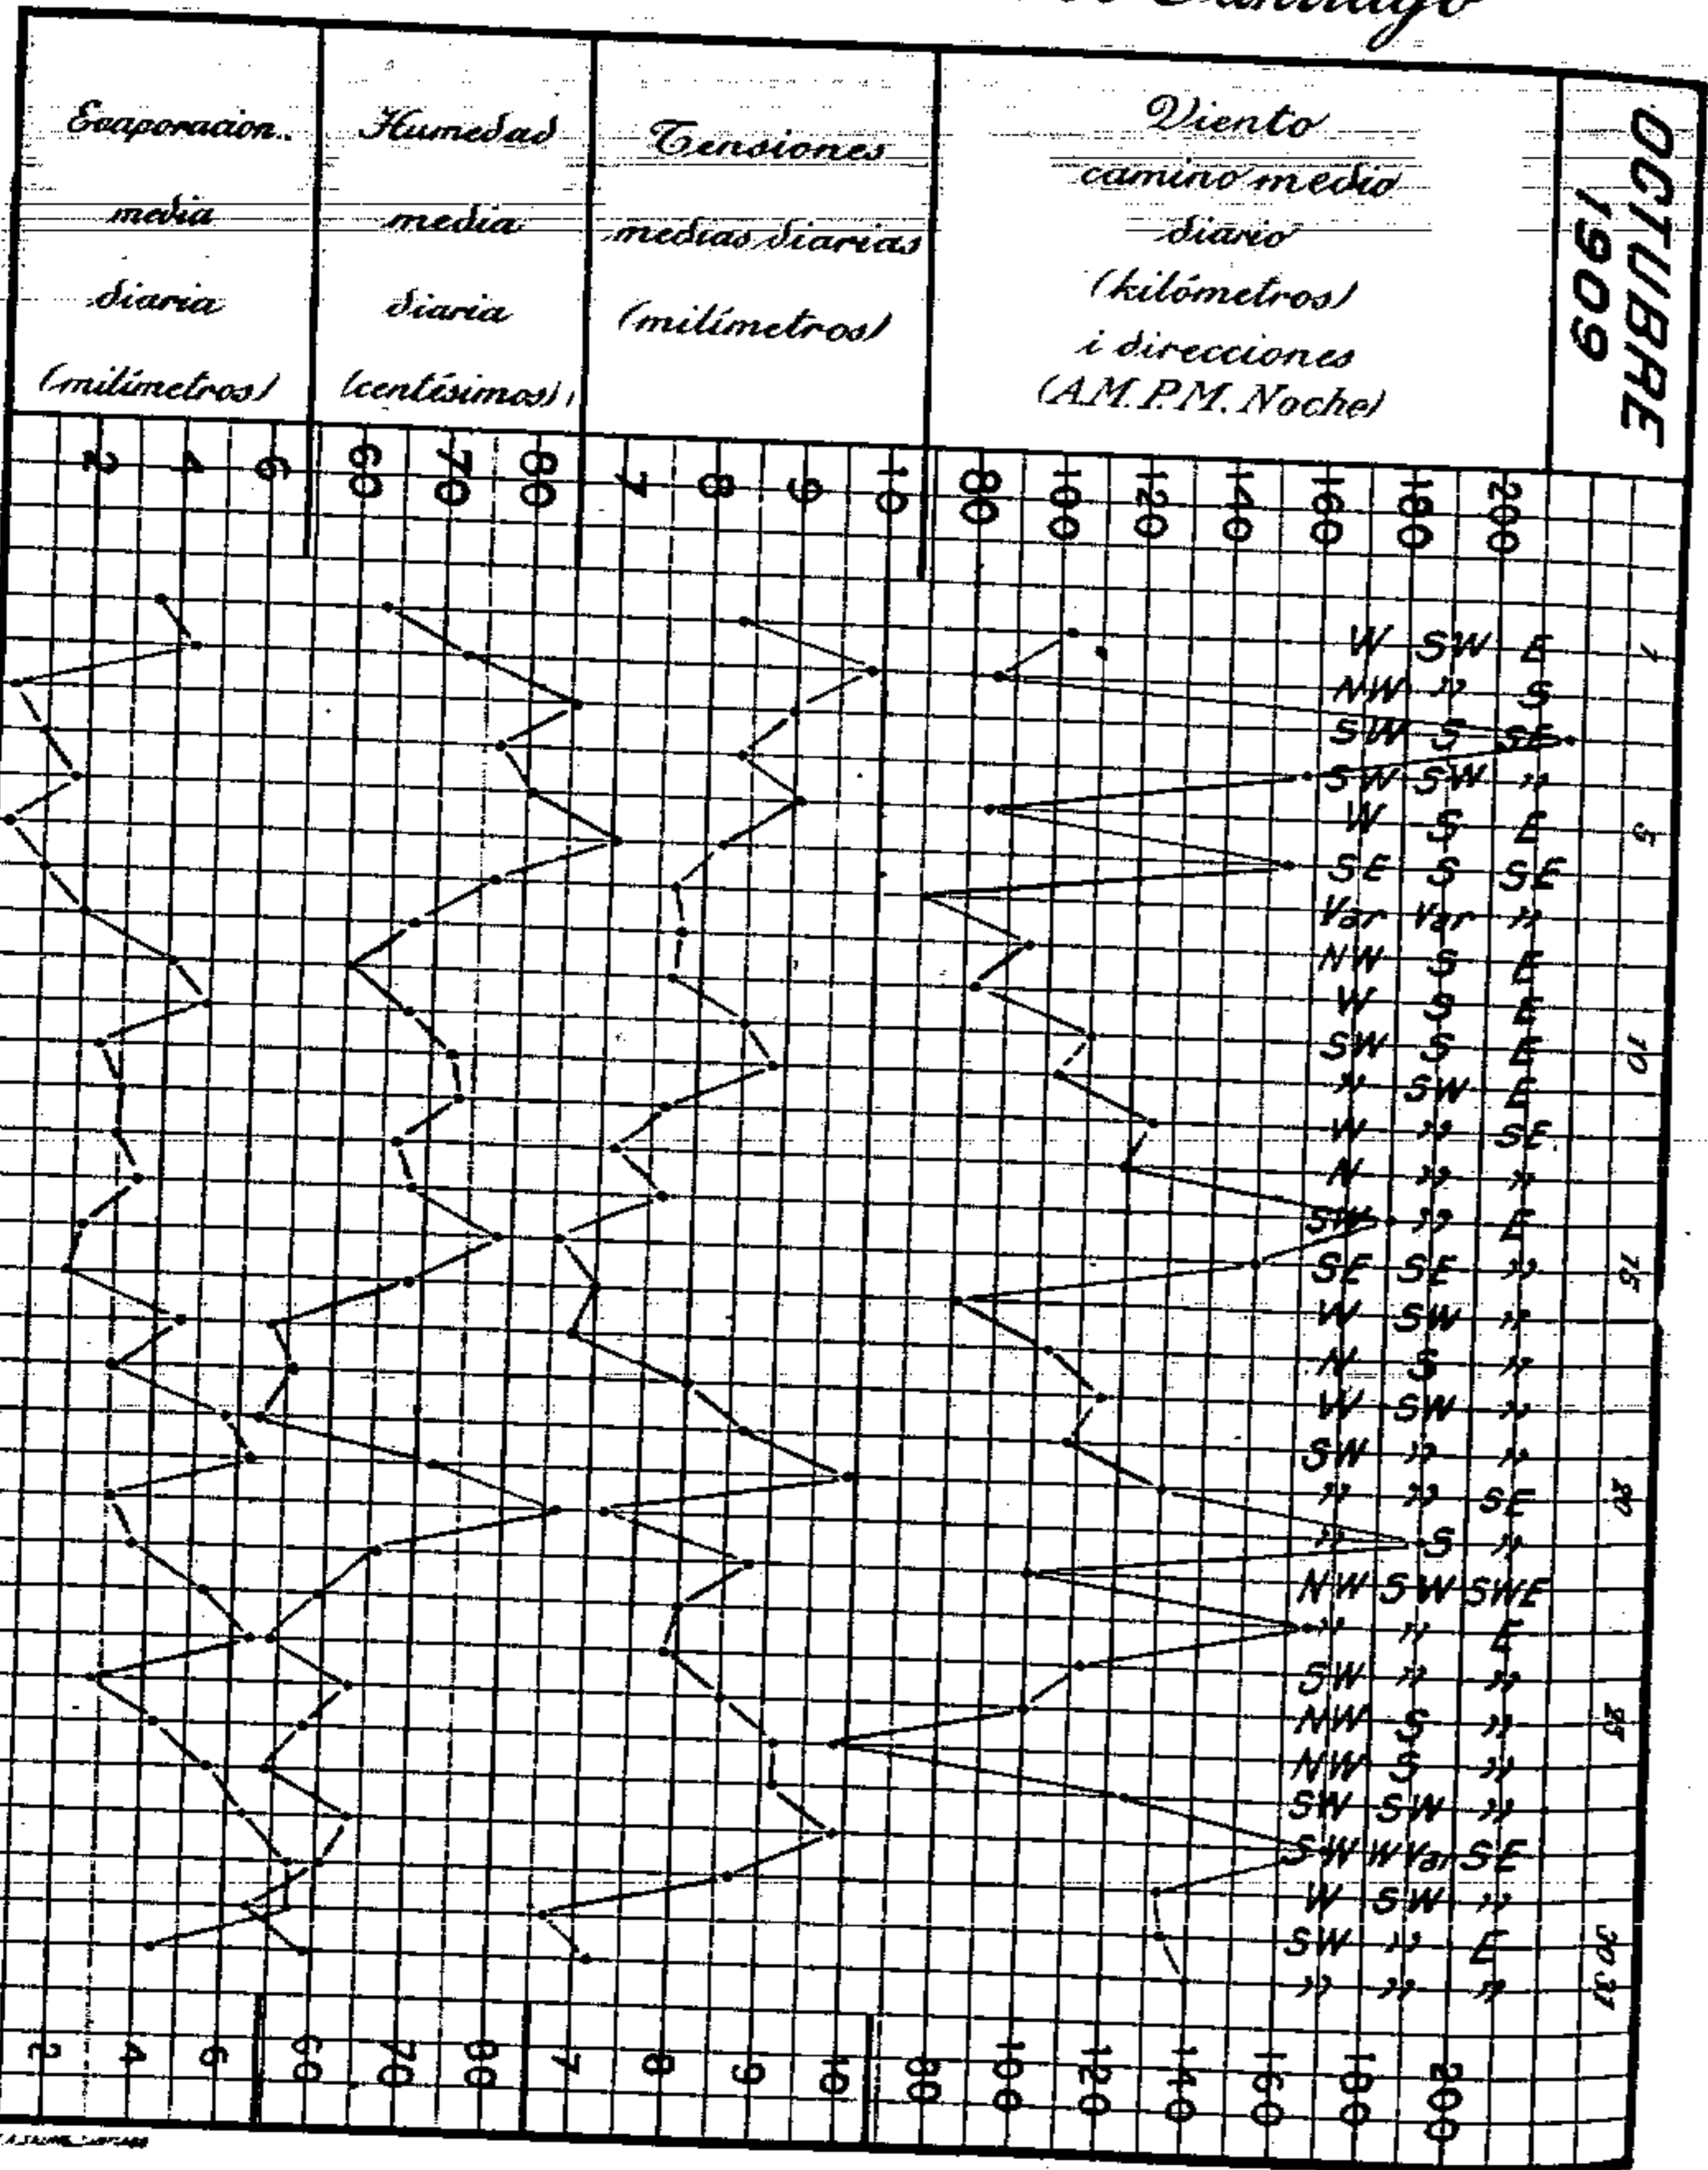 Santiago
Evaporacion.
media
diaria
(milímetros)
Humedad
media
diaria
(centésimos)
Tensiones
medias diarias
(milímetros)
Viento
camino medio
diario
(kilómetros)
i direcciones
(A.M. P.M. Noche)
OCTUBRE
1909
2 4 6 60 70 80 7 8 9 10 80 100 120 140 160 180 200
W SW E 1
NW " S
SW S SE
SW SW "
W S E 5
SE S SE
Var Var "
NW S E
W S E
SW S E 10
" SW E
W " SE
N " "
SW " E
SE SE " 15
W SW "
N S "
W SW "
SW " "
" " SE 20
" S "
NW SW SWE
" " E
SW " "
NW S " 25
NW S "
SW SW "
SW W Var SE
W SW "
SW " E 30
" " " 31
2 4 6 60 70 80 7 8 9 10 80 100 120 140 160 180 200